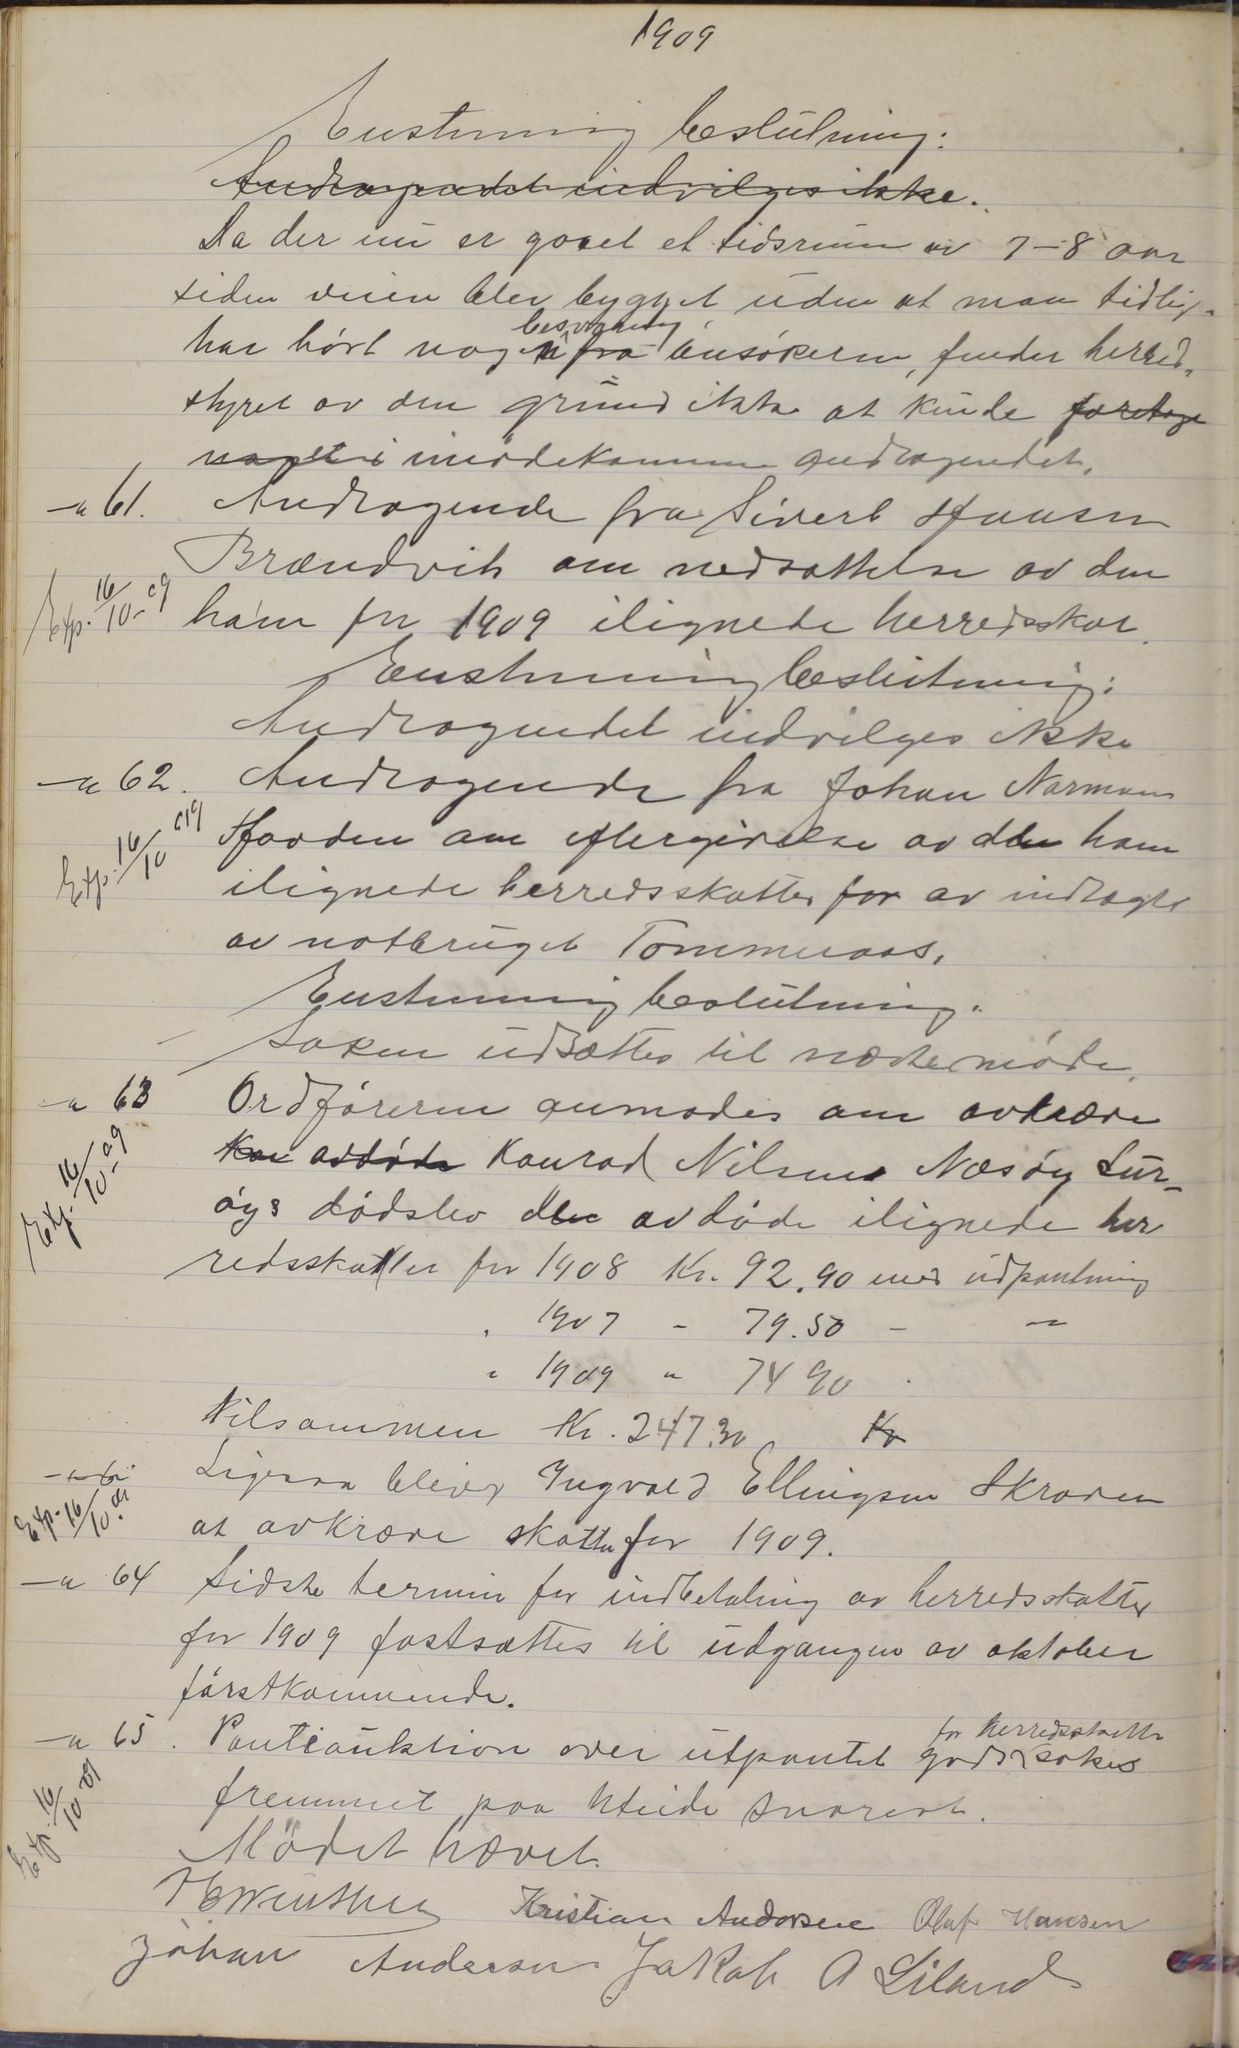 1909
Enstemmig beslutning:
Andragendet indvilges ikke.
Da der nu er gaaet et tidsrum av 7-8 aar
siden veien blev bygget uden at man tidlig.
har hørt nogen besværing fra ansøkeren, finder herred.
styret av den grund ikke at kunde foretage
noget i imødekomme andragendet.
-"- 61. Andragende fra Sivert Hansen
Brændvik om nedsættelse av den
Exp. 16/10-09
ham for 1909 ilignede herredsskat.
Enstemmig beslutning:
Andragendet indvilges ikke
-"- 62. Andragende fra Johan Normann
Exp. 16/10 09
Havden om eftergivelse av den ham
ilignede herredsskatter for av indtægter
av notbruget Tommeraas.
Enstemmig beslutning.
Saken udsættes til næste møde.
-"- 63 Ordføreren anmodes om avkræve
Exp. 16/10-09
avdøde Konrad Nilsens Næsøy Sur-
øys dødsbo den avdøde ilignede her
redsskatter for 1908 Kr. 92.90 med udpantning
" 1907 - 79.50 - "
" 1909 " 74 90
Tilsammen Kr. 247.30 Kr
Ligesaa blir Ingvald Ellingsen Skraven
Exp. 16/10. 09
at avkræve skatten for 1909.
-"- 64 Sidste termin for indbetaling av herredsskatter
for 1909 fastsættes til udgangen av oktober
førstkommende.
-"- 65. Panteauktion over utpantet gods for herredsskatter søkes
Exp. 16/10 09
fremmet paa Meide snarest.
Mødet hævet.
Kristian Andersen Oluf Hansen
Johan Andersen Jakob A Liland